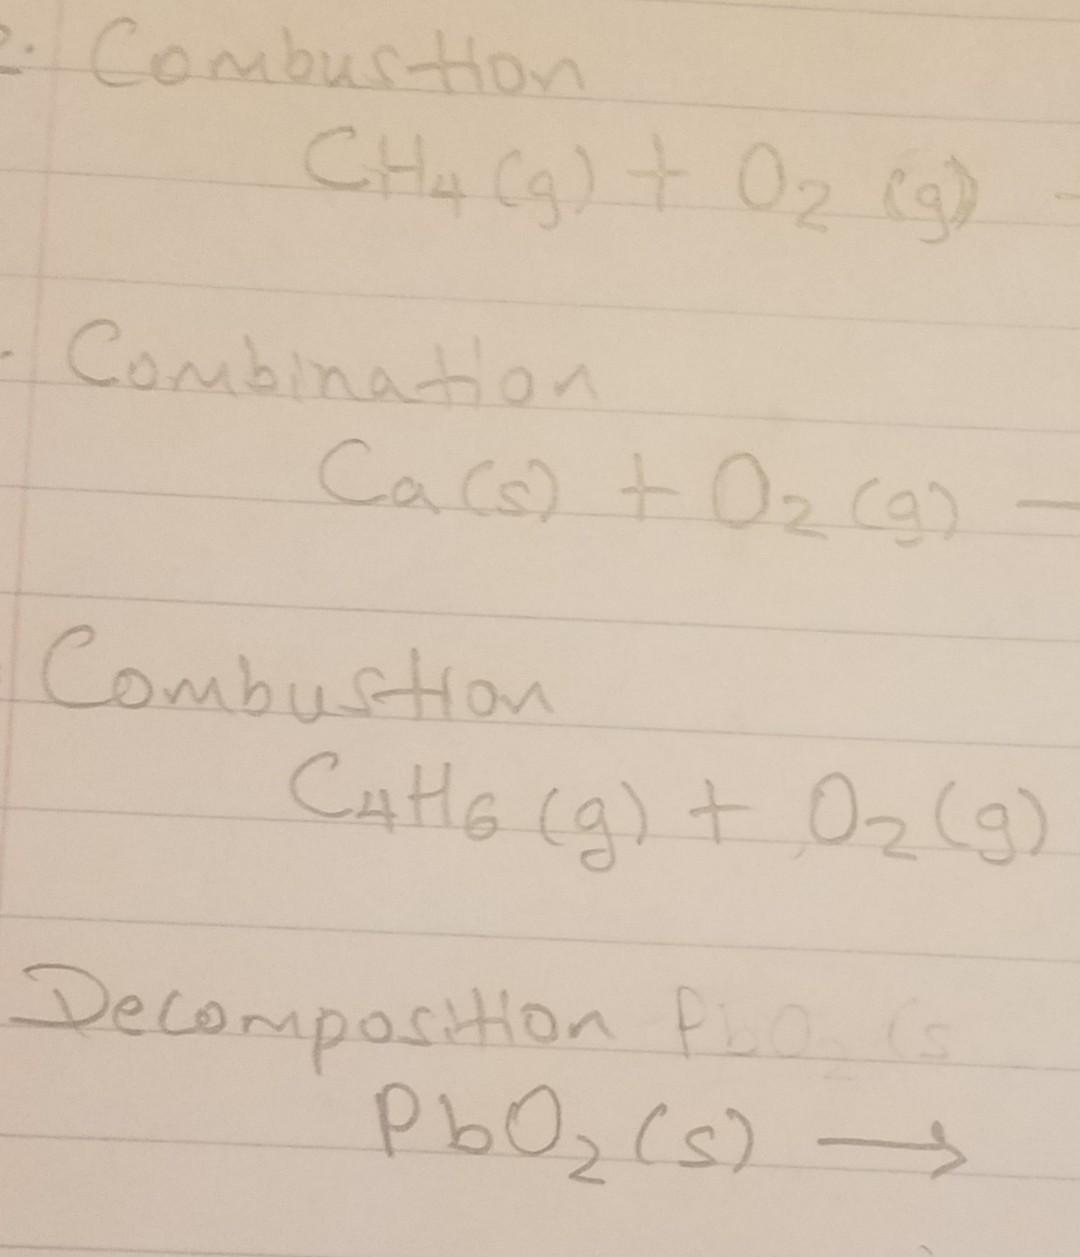 2. Combustion
CH₄ (g) + O₂ (g) -
- Combination
Ca(s) + O₂ (g) —
Combustion
C₄H₆ (g) + O₂ (g)
Decomposition PbO₂ (s
PbO₂ (s) →